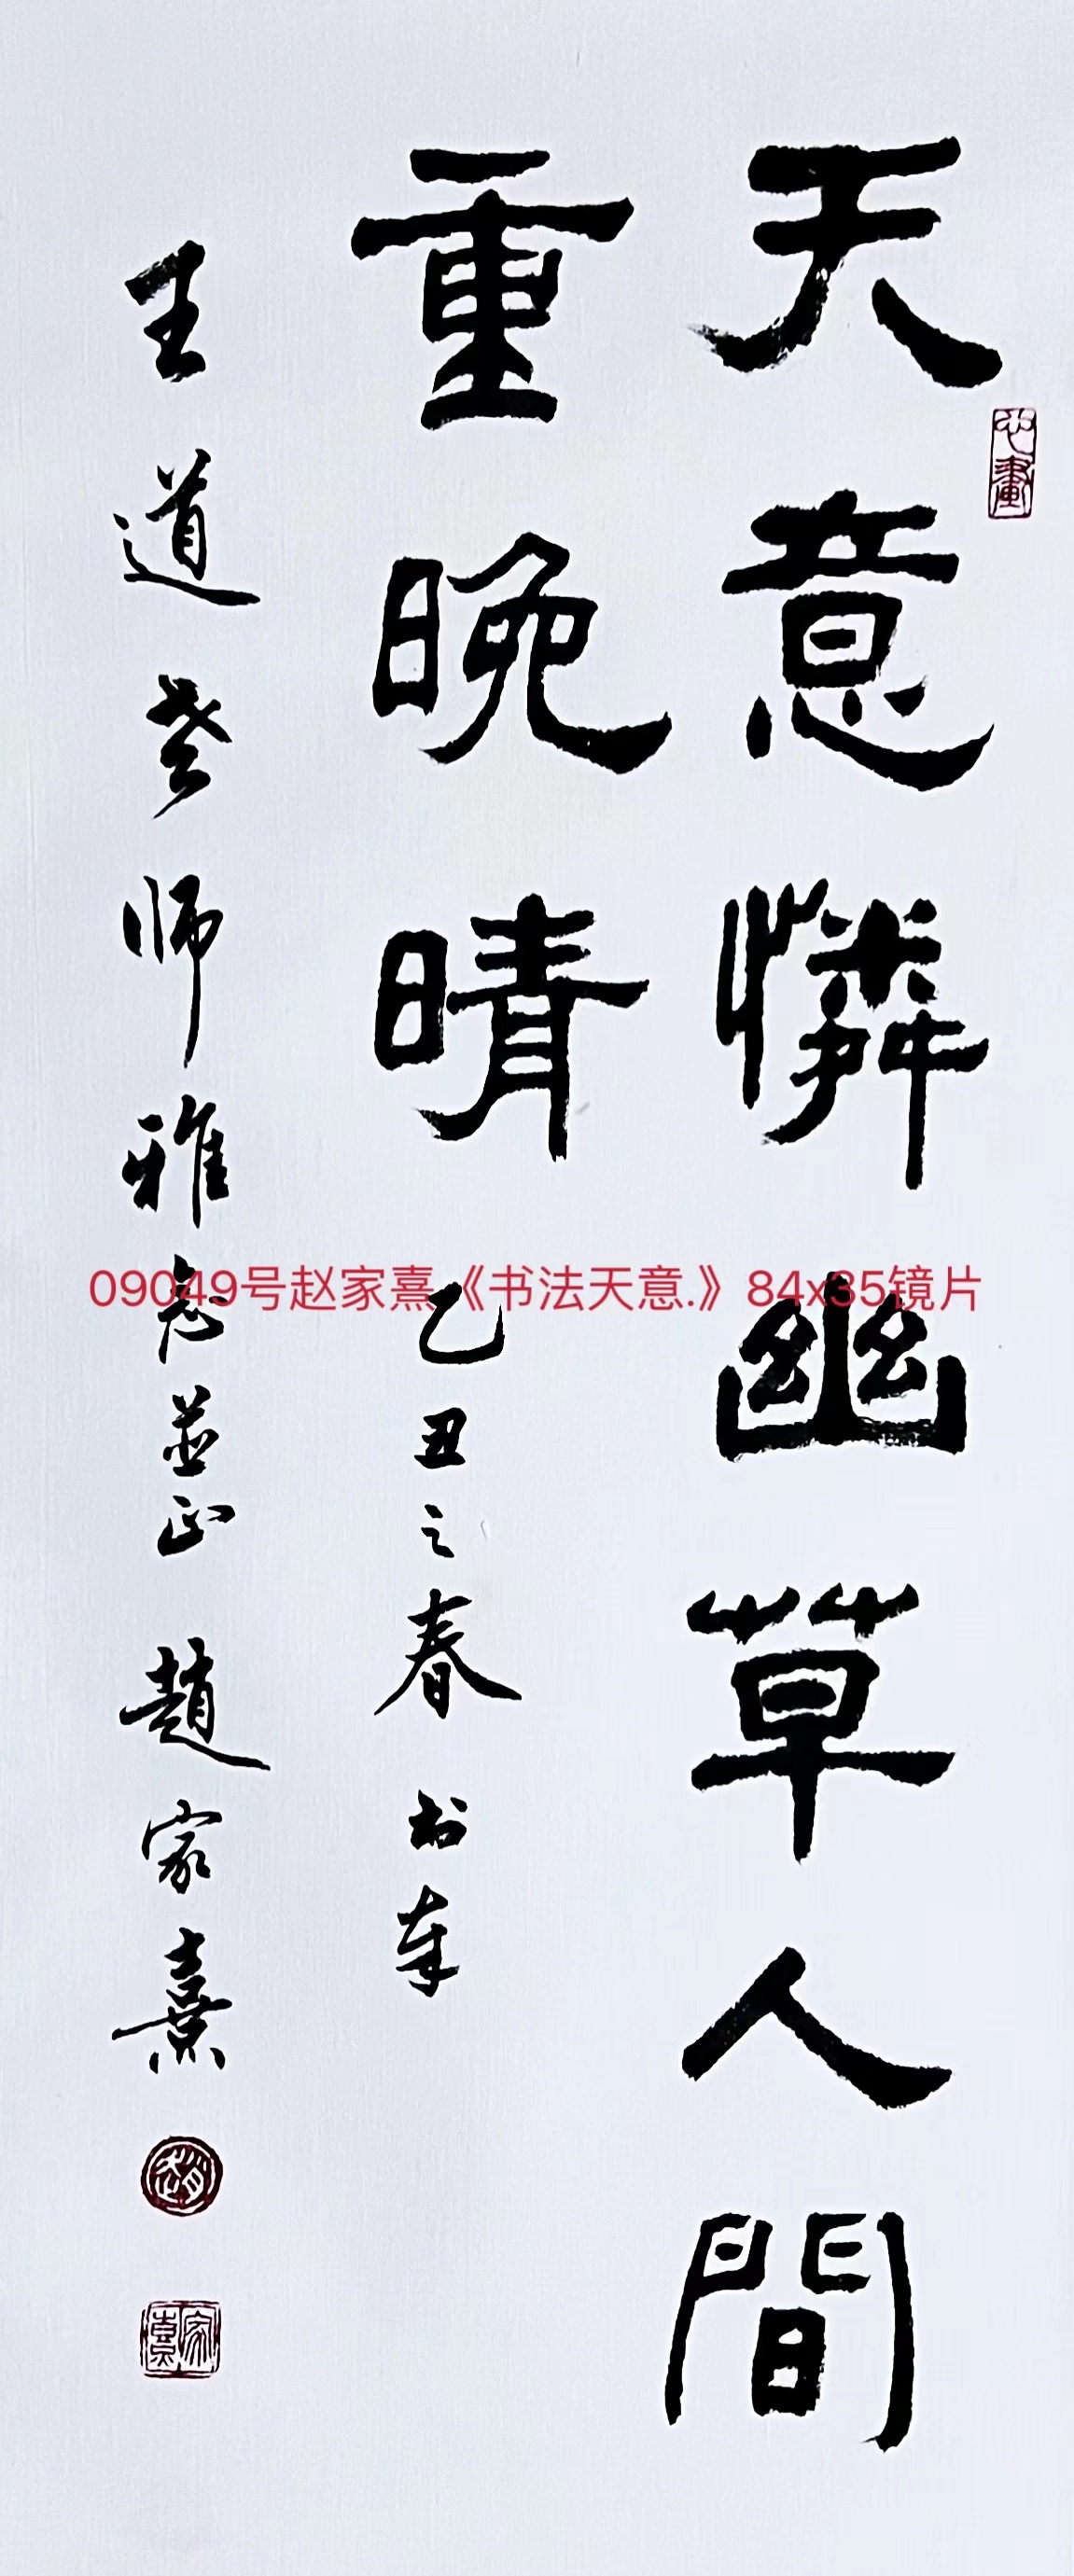 天意憐幽草人間
重晚晴 乙丑之春 书奉
王道老师雅念並正 趙家熹
心畫
家熹
09049号赵家熹《书法天意.》84x35镜片